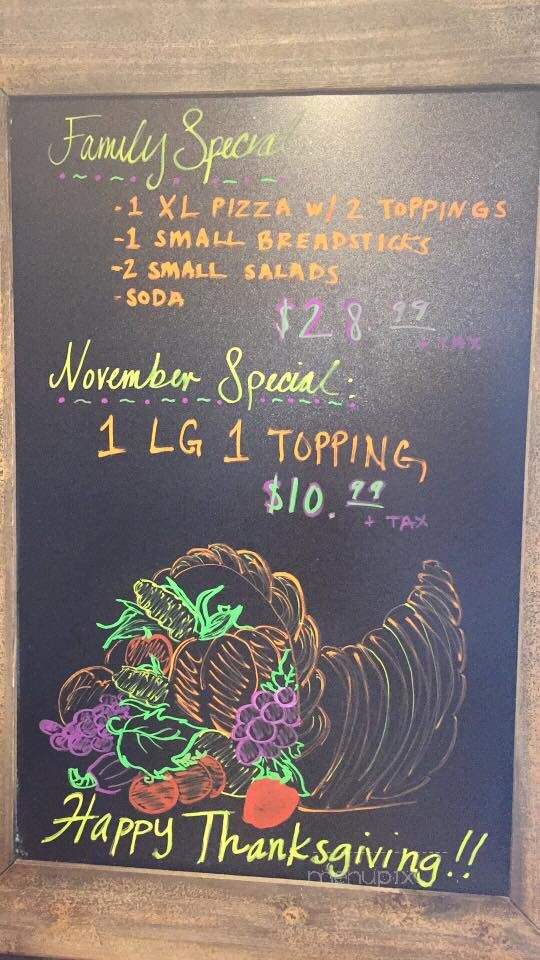 Family Special
-1 XL PIZZA w/ 2 TOPPINGS
-1 SMALL BREADSTICKS
-2 SMALL SALADS
-SODA
$28.99
+ TAX
November Special:
1 LG 1 TOPPING
$10.99
+ TAX
Happy Thanksgiving!!
menupix